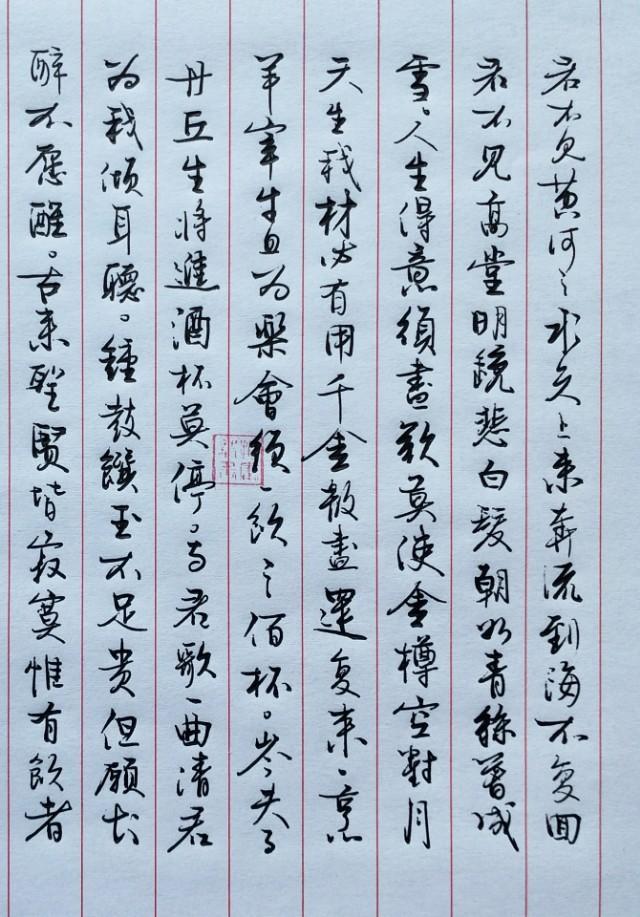 君不見黄河之水天上来奔流到海不复回
君不見高堂明鏡悲白髮朝如青絲暮成
雪。人生得意須盡歡莫使金樽空對月
天生我材必有用千金散盡還复来、烹
羊宰牛且为樂會須一飲三佰杯。岑夫子
丹丘生將進酒杯莫停。与君歌一曲請君
为我傾耳聽。鍾鼓饌玉不足貴但願长
醉不愿醒。古来聖賢皆寂寞惟有飲者